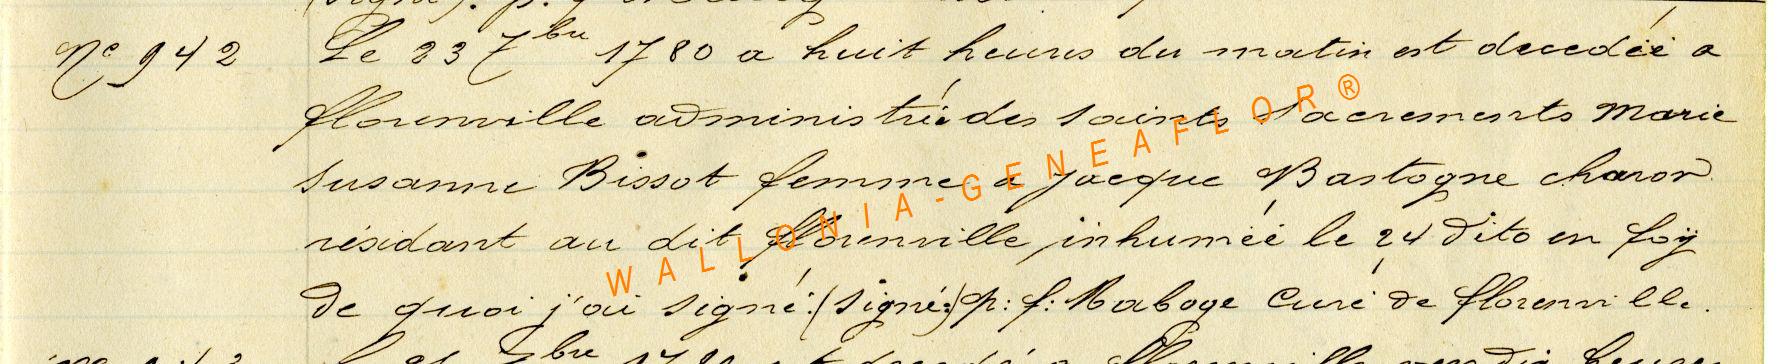 (signé): p: f:
Nº 942 Le 23 7bre 1780 a huit heures du matin est decedéé a
florenville administréé des saints sacrements Marie
susanne Bissot femme a jacque Bastogne charon
résidant au dit florenville inhuméé le 24 dito en foÿ
de quoi j'ai signé: (signé:) p: f: Raboge Curé de florenville.
7bre
WALLONIA-GENEAFLOR®